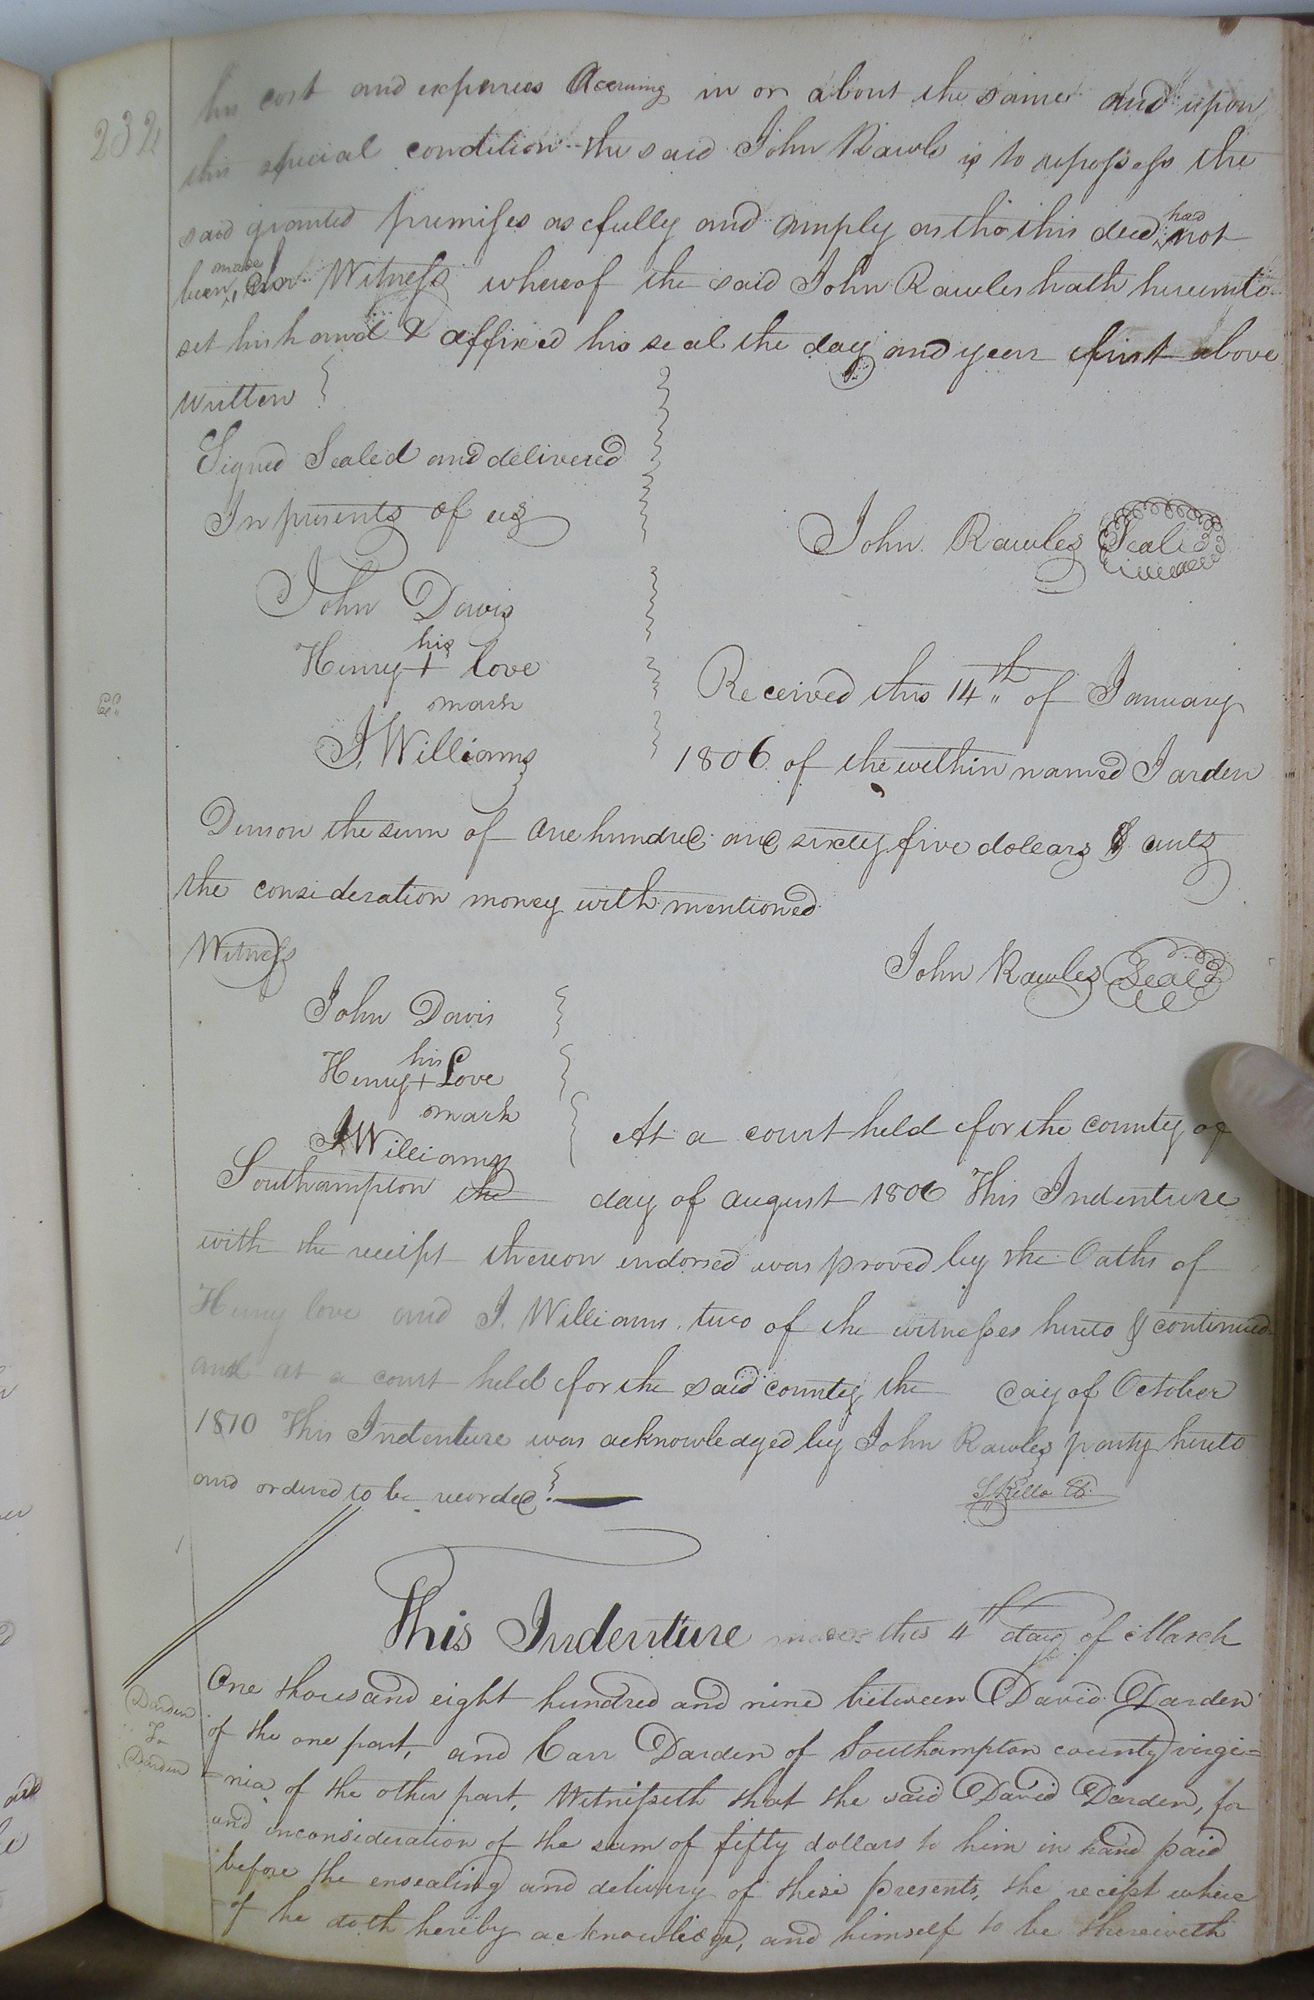 232
his cost and expences Accruing in or about the same and upon
this special condition the said John Rawls is to repossess the
said granted premises as fully and amply as tho this deed had not
been made. In Witness whereof the said John Rawles hath hereunto
set his hand & affixed his seal the day and year first above
written
Signed Sealed and delivered
In presents of us
John Rawles Seal
John Davis
Henry his + mark love
J. Williams
Received this 14th of January
1806 of the within named Jarden
the sum of One hundred and sixty five dollars & cents
the consideration money with mentioned
Witness
John Rawles Seal
John Davis
Henry his + mark Love
J Williams
At a court held for the county of
Southampton the day of august 1806 This Indenture
with the receipt thereon endorsed was proved by the Oaths of
Henry love and J. Williams two of the witnesses hereto & continued
and at a court held for the said county the day of October
1810 This Indenture was acknowledged by John Rawles party hereto
and ordered to be recorded
S Kello
This Indenture made this 4th day of March
Darden
To
Darden
One thousand eight hundred and nine between David Darden
of the one part, and Carr Darden of Southampton county virgi=
=nia of the other part, Witnisseth that the said David Darden, for
and inconsideration of the sum of fifty dollars to him in hand paid
before the ensealing and delivery of these presents, the receipt where
of he doth hereby acknowledge, and himself to be therewith